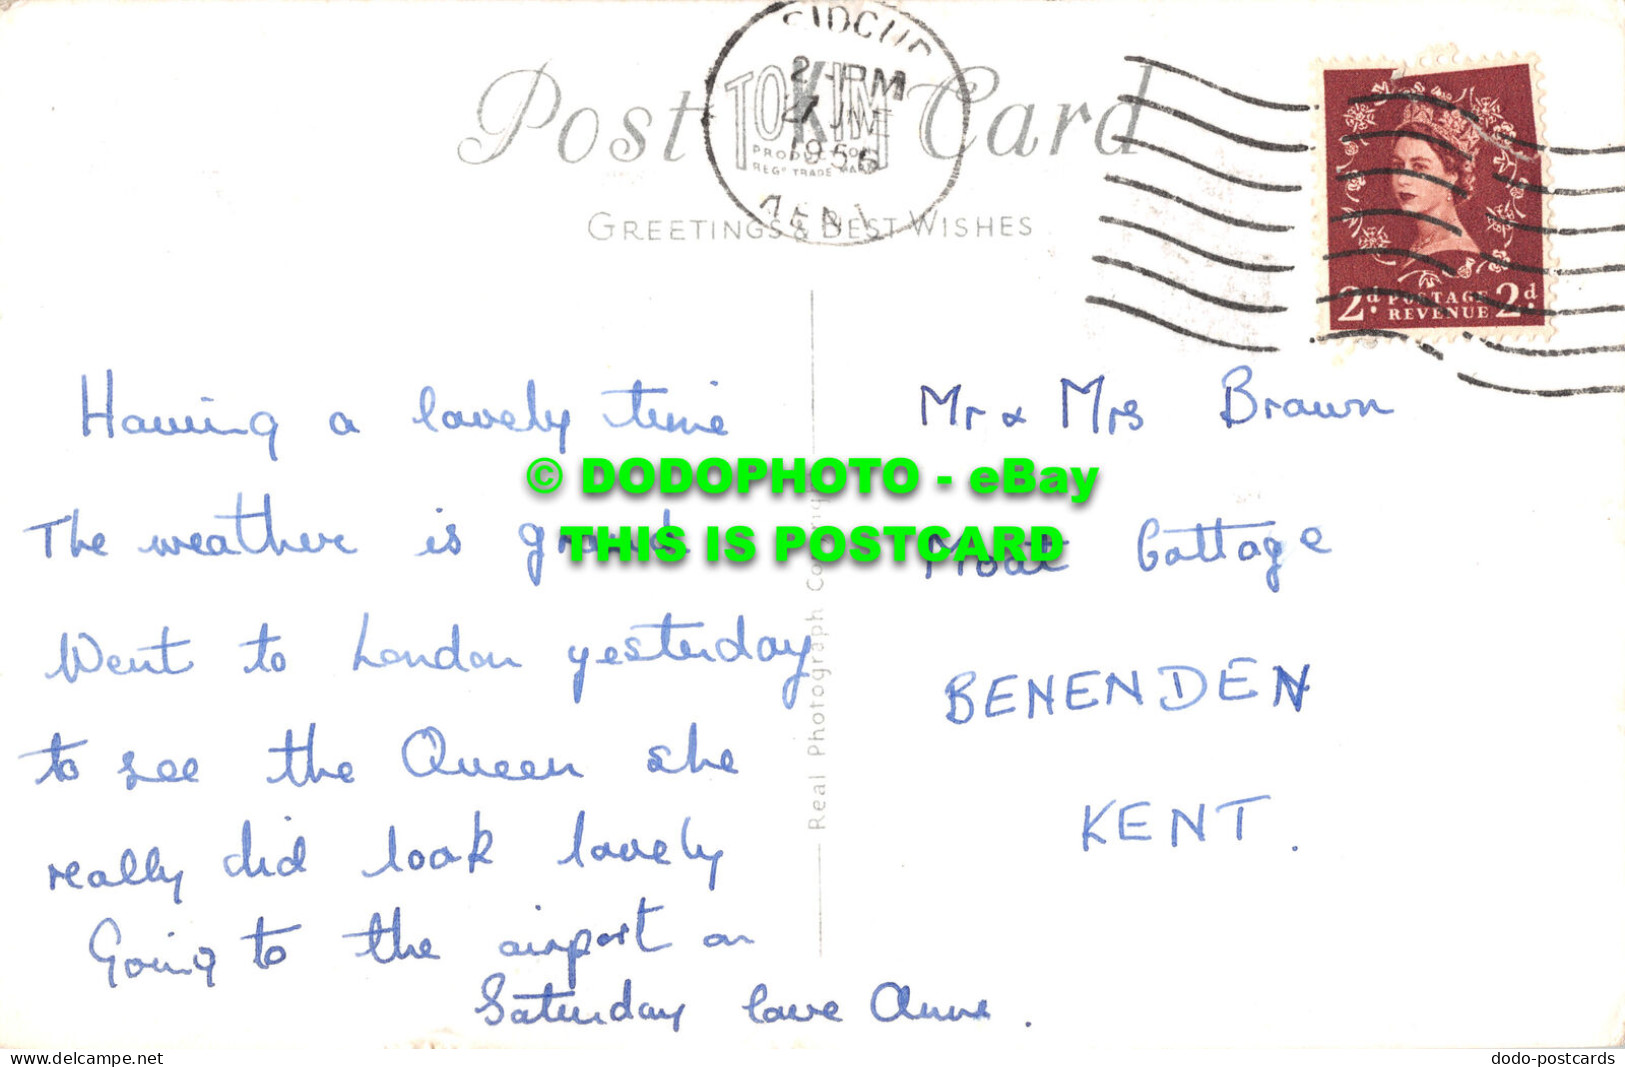 Post Card
TOKIM
PRODUCTION
REGD TRADE MARK
2-PM
27 JNE
1956
GREETINGS & BEST WISHES
2d. POSTAGE REVENUE 2d.
Having a lovely time
The weather is grand
Went to London yesterday
to see the Queen she
really did look lovely
Going to the airport on
Saturday love Anne.
Real Photograph
Mr & Mrs Brown
Moat Cottage
BENENDEN
KENT.
© DODOPHOTO - eBay
THIS IS POSTCARD
www.delcampe.net
dodo-postcards